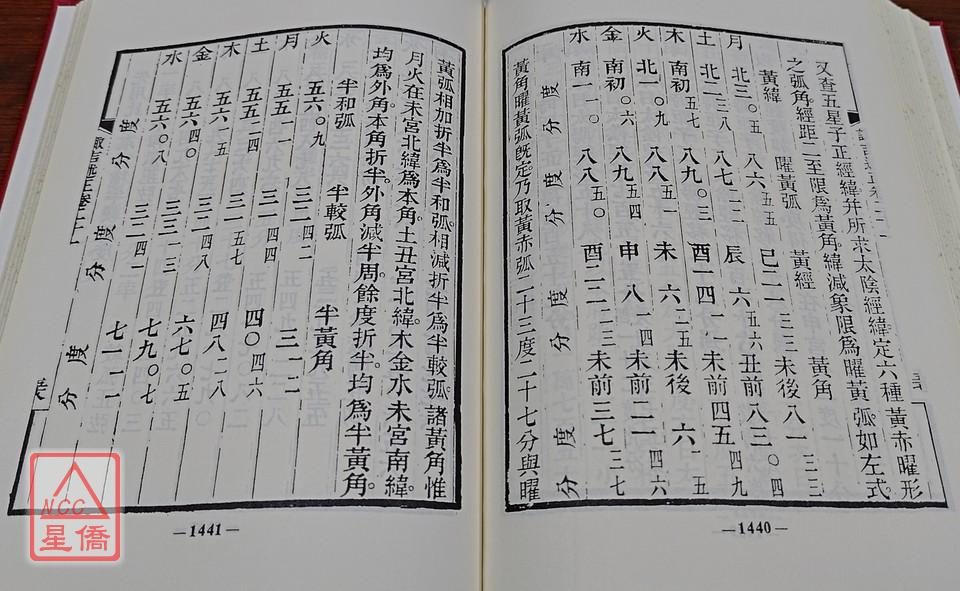 又查五星子正經緯并所求太陰經緯定六種黃赤曜形
之弧角經距二至限爲黃角緯減象限爲曜黃弧如左式
黃緯 曜黃弧 黃經 黃角
月 北三〇五 八六五五 巳二一三三 未後八一三三
土 北二三八 八七二二 辰六五六 丑前八三〇四
木 南初五七 八九〇三 酉一四一一 未前四五四九
火 北一〇九 八八五一 未六二五 未後六二五
金 南初〇六 八九五四 申八一四 未前二一四六
水 南一一〇 八八五〇 酉二二二三 未前三七三七
度分 度分 度分 度分
黃角曜黃弧旣定乃取黃赤弧二十三度二十七分與曜
—1440—
黃弧相加折半爲半和弧。相減折半爲半較弧。諸黃角惟
月火在未宮北緯爲本角。土丑宮北緯。木金水未宮南緯。
均爲外角。本角折半。外角減半周。餘度折半。均爲半黃角。
半和弧 半較弧 半黃角
火 五六〇九 三二四二 三一二
月 五五一一 三一四四 四〇四六
土 五五二四 三一五七 四八二八
木 五六一五 三二四八 六七〇五
金 五六四〇 三三一三 七九〇七
水 五六〇八 三二四一 七一一一
度分 度分 度分
—1441—
NCC
星僑